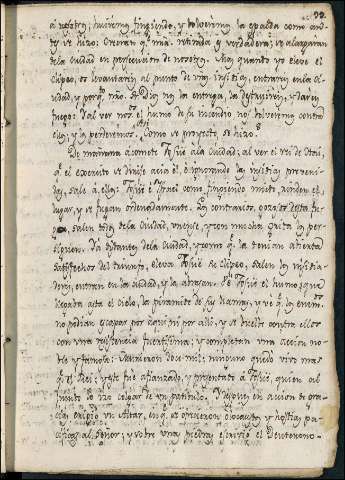 92.
á nosotros; huiremos fingiendo, y bolveremos la espalda como an-
tes se hizo: Creeran qe. es ntra. retirada verdadera; se alargaran
de la ciudad en persecucion de nosotros. Mas quando yo eleve el
Clipeo, os levantareis al punto de vras. insidias, entrareis en la ci-
udad, y porqe. nro. Dios nos la entrega, la destruireis, y dareis
fuego: al ver nosotros el humo de su incendio nos bolveremos contra
ellos, y los perderemos. Como se proyectó, se hizo.
De mañana acomete Josue a la Ciudad; al ver el rei de Hai,
qe. el exercito se dirije acia el, é ignorando las insidias preveni-
das, sale á ellos: Josue e Israel como fingiendo miedo, ceden el
lugar, y se fugan ordenadamente. Los contrarios, gozosos de esta fu-
ga, salen todos de la Ciudad, unense, y con mucha grita los per-
siguen. Ya distantes de la Ciudad, y como qe. la tenian abierta
satisfechos del triunfo, eleva Josue su Clipeo, salen los insidia-
dores, entran en la ciudad, y la abrasan. Ve Josue el humo, que
llegaba asta el cielo, la piramide de sus llamas, y ve qe. los enemigos
no podian escapar por aqui ni por alli, y se buelve contra ellos
con una resistencia fuertisima; y completan una accion no-
ble y famosa. Murieron doce mil: ninguno quedó vivo mas
qe. el Rei; y este fue afianzado, y presentado a Josue, quien al
punto lo izo colgar de un patibulo. Despues en accion de gra-
cias erigió un Altar, en qe. se ofrecieron olocaustos y hostias pa-
cificas al Señor; y sobre unas piedras escrivió el Deuterono-